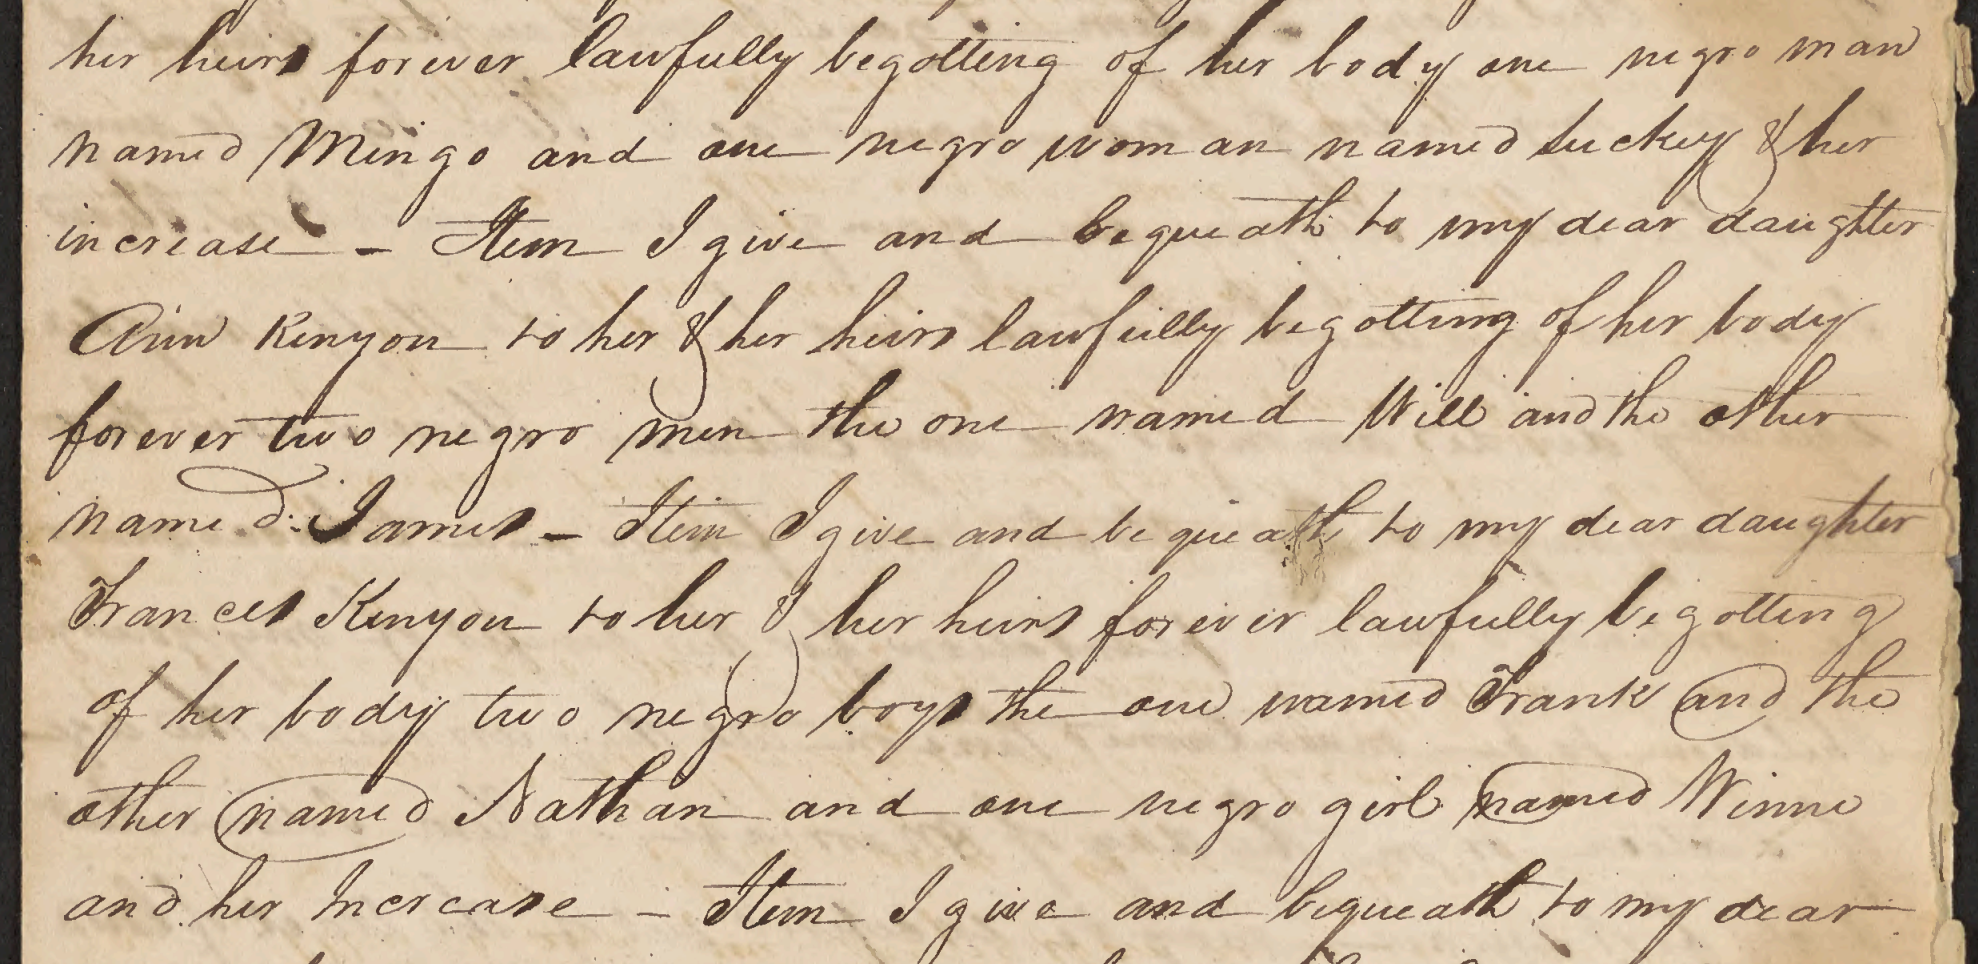 her heirs forever lawfully begotting of her body one negro man
named Mingo and one negro woman named Suckey & her
increase - Item I give and bequeath to my dear daughter
Ann Kenyon to her & her heirs lawfully begotting of her body
forever two negro men the one named Will and the other
named James - Item I give and bequeath to my dear daughter
Frances Kenyon to her & her heirs forever lawfully begotting
of her body two negro boys the one named Frank and the
other named Nathan and one negro girl named Winne
and her Increase - Item I give and bequeath to my dear